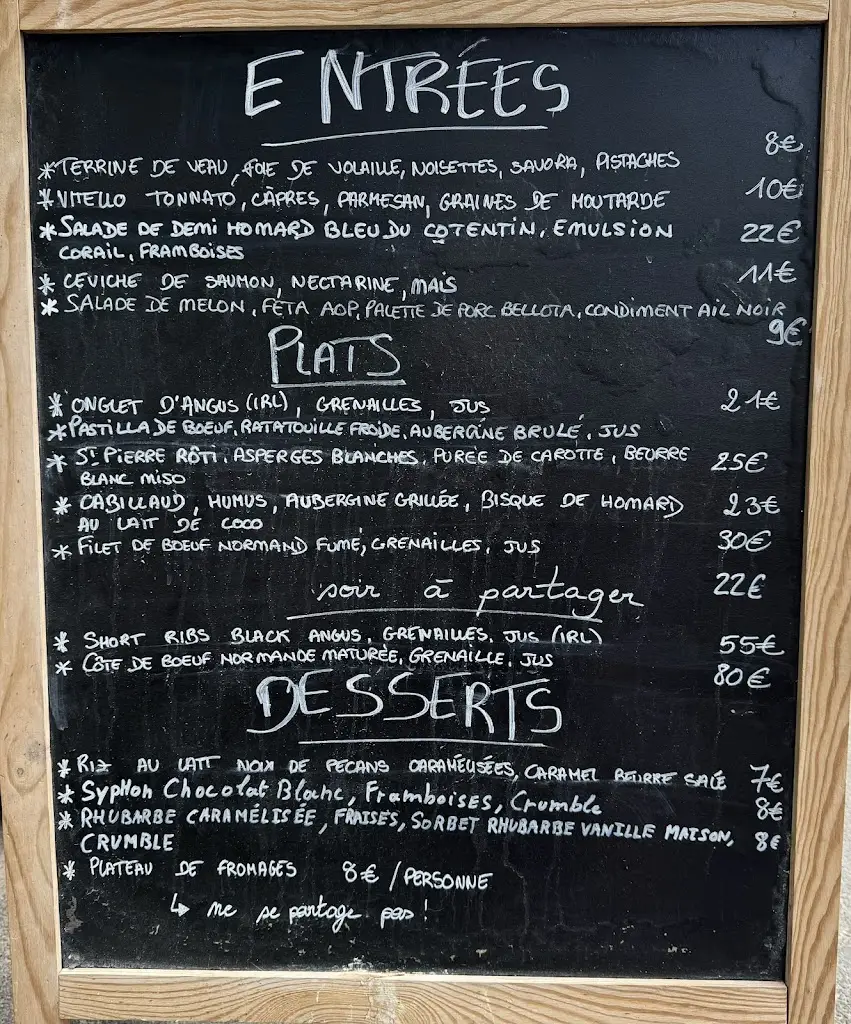 ENTRÉES
* TERRINE DE VEAU, FOIE DE VOLAILLE, NOISETTES, SAVORA, PISTACHES 8€
* VITELLO TONNATO, CÂPRES, PARMESAN, GRAINES DE MOUTARDE 10€
* SALADE DE DEMI HOMARD BLEU DU COTENTIN, EMULSION 22€
CORAIL, FRAMBOISES
* CEVICHE DE SAUMON, NECTARINE, MAÏS 11€
* SALADE DE MELON, FÉTA AOP, PALETTE DE PORC BELLOTA, CONDIMENT AIL NOIR
9€
PLATS
* ONGLET D'ANGUS (IRL), GRENAILLES, JUS 21€
* PASTILLA DE BOEUF, RATATOUILLE FROIDE, AUBERGINE BRULÉ, JUS
* ST PIERRE RÔTI, ASPERGES BLANCHES, PURÉE DE CAROTTE, BEURRE 25€
BLANC MISO
* CABILLAUD, HUMUS, AUBERGINE GRILLÉE, BISQUE DE HOMARD 23€
AU LAIT DE COCO
* FILET DE BOEUF NORMAND FUMÉ, GRENAILLES, JUS 30€
soir à partager 22€
* SHORT RIBS BLACK ANGUS, GRENAILLES, JUS (IRL) 55€
* CÔTE DE BOEUF NORMANDE MATURÉE, GRENAILLE, JUS 80€
DESSERTS
* RIZ AU LAIT NOIX DE PECANS CARAMÉLISÉES, CARAMEL BEURRE SALÉ 7€
* Syphon Chocolat Blanc, Framboises, Crumble 8€
* RHUBARBE CARAMÉLISÉE, FRAISES, SORBET RHUBARBE VANILLE MAISON, 8€
CRUMBLE
* PLATEAU DE FROMAGES 8€ / PERSONNE
↳ ne se partage pas !